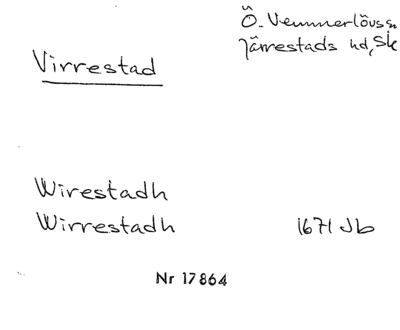 Ö. Vemmerlövs sn
Järrestads hd, Sk
Virrestad
Wirestadh
Wirrestadh 1671 Jb
Nr 17864